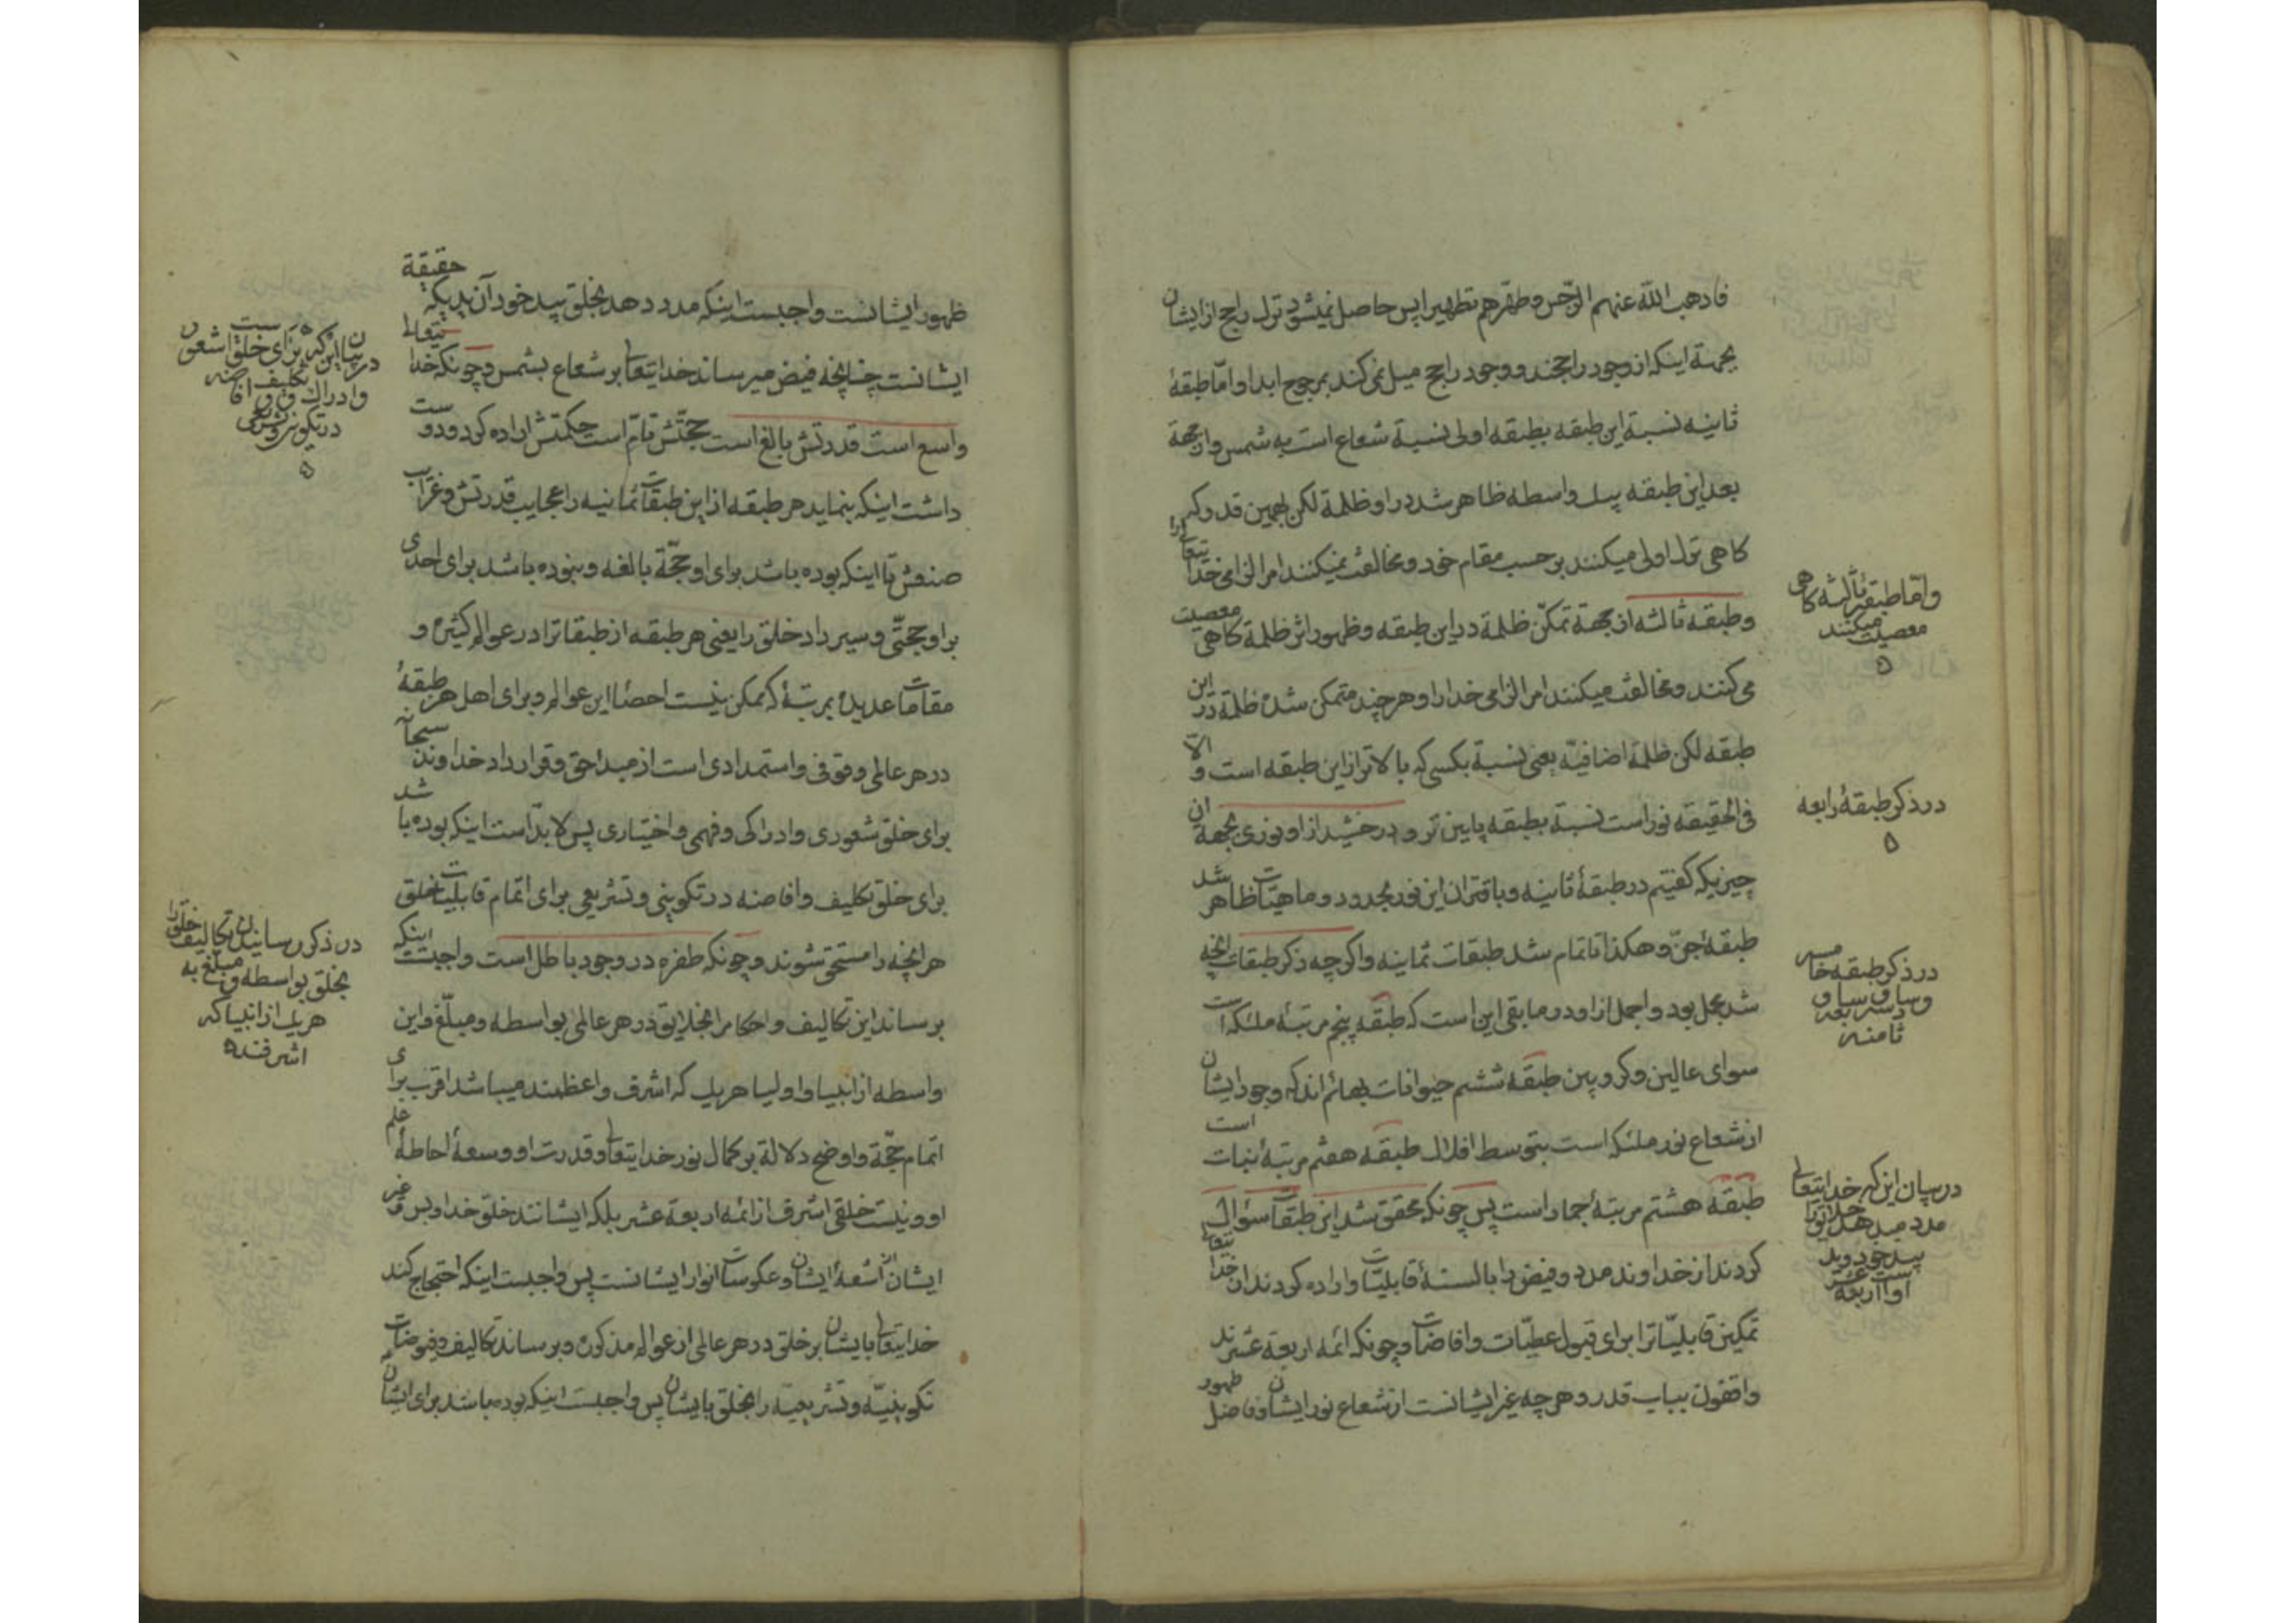 فاذهب الله عنهم الرجس و طهرهم تطهیرا پس حاصل نمیشود ترک راجح از ایشان
بجهة اینکه از وجود راجحند و وجود راجح میل نمی کند بمرجوح ابدا و امّا طبقهٔ
ثانیه نسبة این طبقه بطبقه اولی نسبة شعاع است به شمس و از جهة
بعد این طبقه بیک واسطه ظاهر شد در او ظلمة لکن بهمین قدر که
کاهی ترک اولی میکنند بر حسب مقام خود و مخالفت نمیکنند امر الزامی خدایتعالی را
و طبقه ثالثه از جهة تمکّن ظلمة در این طبقه و ظهور اثر ظلمة کاهی معصیت
می کنند و مخالفت میکنند امر الزامی خدا را و هر چند متمکن شده ظلمة در این
طبقه لکن ظلمة اضافیّه یعنی نسبة بکسی که بالاتر از این طبقه است و الا
فی الحقیقه نور است نسبة بطبقه پایین تر و درخشید از او نوری بجهة ان
چیزیکه کفتیم در طبقهٔ ثانیه و باقتران این نور بحدود و ماهیّات ظاهر شد
طبقهٔ جنّ و هکذا تا تمام شد طبقات ثمانیه و اگر چه ذکر طبقات انچه
شد مجمل بود و اجمل از او در ما بقی این است که طبقه پنجم مرتبهٔ ملئکه است
سوای عالین و کروبین طبقه ششم حیوانات بهائم اند که وجود ایشان
از شعاع نور ملئکه است بتوسط افلاک طبقه هفتم مرتبهٔ نبات است
طبقه هشتم مرتبهٔ جماد است پس چونکه محقق شد این طبقات سؤال
کردند از خداوند مدد و فیض را بالسنهٔ قابلیّات و اراده کردند از خدایتعالی
تمکین قابلیّاترا برای قبول عطیّات و افاضات و چونکه ائمه اربعة عشرند
واقفون بباب قدر و هر چه غیر ایشانست از شعاع نور ایشان و فاضل ظهور
و امّا طبقهٔ ثالثه کاهی
معصیت میکنند
در ذکر طبقهٔ رابعه
در ذکر طبقه خامسه
و سادسه و سابعه
ثامنه
در بیان این که خدایتعالی
مدد میدهد خلایق را
بید خود و ید
او اربعة عشر است
ظهور ایشانست واجبست اینکه مدد دهد بخلق بید خود آن یدیکه حقیقة
ایشانست چنانچه فیض میرساند خدایتعالی بر شعاع بشمس و چونکه خدایتعالی
واسع است قدرتش بالغ است حجّتش تامّ است حکمتش اراده کرد و دوست
داشت اینکه بنماید هر طبقه از این طبقات ثمانیه را عجایب قدرتش و غرایب
صنعش تا اینکه بوده باشد برای او حجّة بالغه و نبوده باشد برای احدی
بر او حجّتی و سیر داد خلق را یعنی هر طبقه از طبقاترا در عوالم کثیره و
مقامات عدیده بمرتبهٔ که ممکن نیست احصا این عوالم و برای اهل هر طبقهٔ
در هر عالمی وقوفی و استمدادی است از مبدا حق و قرار داد خداوند سبحانه
برای خلق شعوری و ادراکی و فهمی و اختیاری پس لابدّ است اینکه بوده باشد
برای خلق تکلیف و افاضه در تکوینی و تشریعی برای اتمام قابلیّت خلق
هر انچه را مستحق شوند و چونکه طفره در وجود باطل است واجبست اینکه
برساند این تکالیف و احکام را بخلایق در هر عالمی بواسطه و مبلّغ و این
واسطه از انبیا و اولیا هر یک که اشرف و اعظمند میباشد اقرب برای
اتمام حجّة و اوضح دلالة بر کمال نور خدایتعالی و قدرت او و وسعهٔ احاطهٔ علم
او و نیست خلقی اشرف از ائمه اربعة عشر بلکه ایشانند خلق خدا و بس و غیر
ایشان از اشعهٔ ایشان و عکوسات انوار ایشانست پس واجبست اینکه احتجاج کند
خدایتعالی بایشان بر خلق در هر عالمی از عوالم مذکوره و برساند تکالیف و فیوضات
تکوینیّه و تشریعیّه را بخلق بایشان پس واجبست اینکه بوده باشد برای ایشان
در بیان این که برای خلق است شعور
و ادراک و تکلیف و افاضه
در تکوینی و تشریعی
در ذکر رسانیدن تکالیف خلق را
بخلق بواسطه و مبلّغ به
هر یک از انبیا که
اشرفند